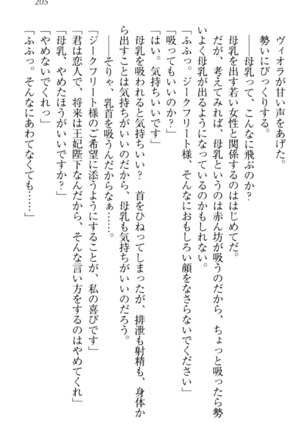 205
ヴィオラが甘い声をあげた。
勢いにびっくりする。
母乳って、こんなに飛ぶのか？
母乳を出す若い女性と関係するのははじめてだ。
だが、考えてみれば、母乳というのは赤ん坊が吸うのだから、ちょっと吸ったら勢
いよく母乳が出るようになっているのかもしれない。
「ふふっ。ジークフリート様、そんなにおもしろい顔をなさらないでください」
「吸ってもいいのか？」
「はい。気持ちいいです」
母乳を吸われると気持ちいい？　首をひねってしまったが、排泄も射精も、身体か
ら出すことは気持ちがいいのだから、母乳も気持ちがいいのだろう。
――そりゃ、乳首を吸うんだからなぁ……。
「ジークフリート様のご希望に添うようにすることが、私の喜びです」
「君は恋人で、将来は王妃陛下なんだから、そんな言い方をするのはやめてくれ」
「母乳、やめたほうがいいですか？」
「やめないでくれっ」
「ふふっ。そんなにあわてなくても……」